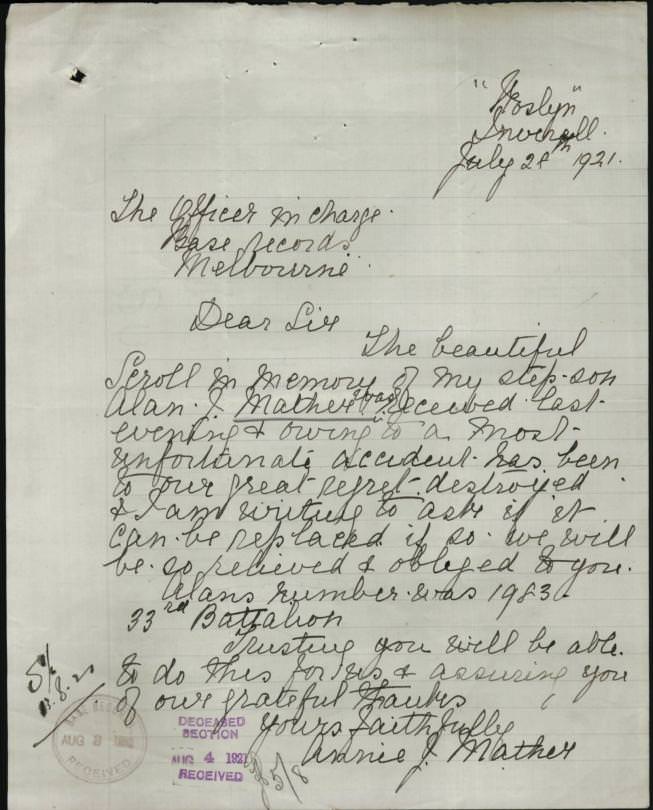 "Roslyn"
Inverell.
July 28th 1921.
The Officer in charge.
Base records
Melbourne.
Dear Sir
The beautiful
Scroll in memory of my step-son
Alan. J. Mather was received last
evening & owing to a most
unfortunate accident has been
to our great regret destroyed
& I am writing to ask if it
can be replaced if so we will
be so relieved & obliged to you.
Alans number was 1983
33rd Battalion
Trusting you will be able
to do this for us & assuring you
of our grateful thanks
Yours faithfully
Annie J. Mather
BASE RECORDS
AUG 3
RECEIVED
DECEASED
SECTION
AUG 4 1921
RECEIVED
5/8